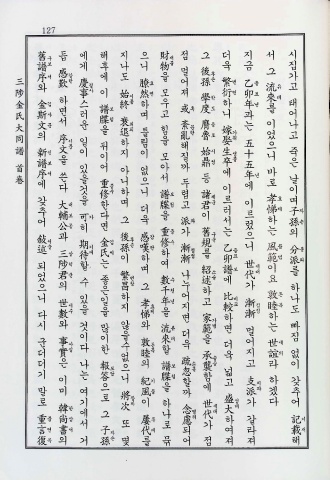 시집가고 태어나고 죽은 날이며 子孫의 分派를 하나도 빠짐 없이 갖추어 記載해
서 그 流來를 이었으니 바로 孝悌하는 風範이요 敦睦하는 世誼라 하겠다
지금 乙卯年과는 五十五年에 이르렀으니 世代가 漸漸 멀어지고 支派가 갈라져
더욱 繁衍하니 嫁娶生卒에 이르러서는 乙卯譜에 比較하면 더욱 넓고 盛大하여져
그 後孫 學度 膺魯 等 諸君이 舊規를 紹述하고 家範을 承襲함에 世代가 점
점 멀어져 或 紊亂해질까 두렵고 派가 漸漸 나누어지면 더욱 疏忽할까 念慮되어
財物을 모우고 힘을 모아서 譜牒을 重修하여 數千年을 流來할 譜牒을 하나로 묶
으니 瞭然하며 틀림이 없으니 더욱 感嘆하며 그 孝悌와 敦睦의 紀風이 屢代를
지나도 始終 衰退하지 아니하며 그 後孫이 繁昌하지 않을수없으니 將次 또 몇
해후에 이 譜牒을 뒤이어 重修한다면 金氏는 좋은일을 많이한 報答으로 그 子孫
에게 慶事스러운 일이 있을것을 可히 期待할 수 있을 것이다 나는 여기에서 거
듭 感歎하면서 序文을 쓴다 大輔公과 三陟君의 世數와 事實은 이미 韓尙書의
舊譜序와 金斯文의 新譜序에 갖추어 敍述되었으니 다시 군더더기 말로 重言復
三陟金氏大同譜 首卷
127